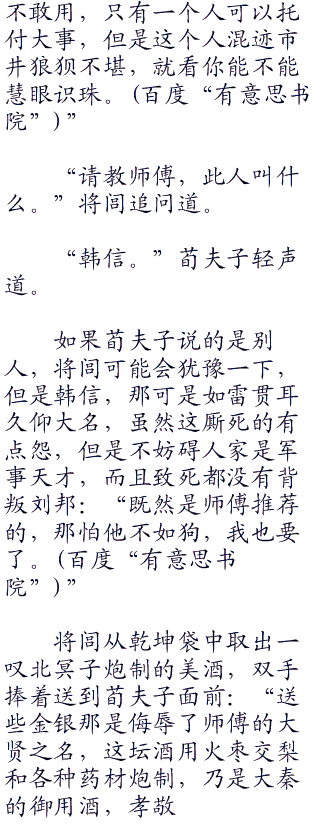 不敢用，只有一个人可以托
付大事，但是这个人混迹市
井狼狈不堪，就看你能不能
慧眼识珠。(百度“有意思书
院”)”
“请教师傅，此人叫什
么。”将闾追问道。
“韩信。”荀夫子轻声
道。
如果荀夫子说的是别
人，将闾可能会犹豫一下，
但是韩信，那可是如雷贯耳
久仰大名，虽然这厮死的有
点怨，但是不妨碍人家是军
事天才，而且致死都没有背
叛刘邦：“既然是师傅推荐
的，那怕他不如狗，我也要
了。(百度“有意思书
院”)”
将闾从乾坤袋中取出一
叹北冥子炮制的美酒，双手
捧着送到荀夫子面前：“送
些金银那是侮辱了师傅的大
贤之名，这坛酒用火枣交梨
和各种药材炮制，乃是大秦
的御用酒，孝敬